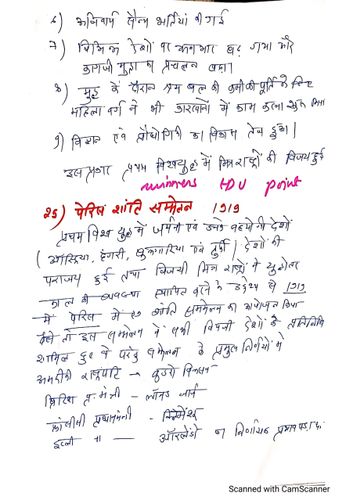 ६) अनिवार्य सैन्य भर्तियां की गई
७) विभिन्न देशों पर कर्जभार बढ़ गया और
कागजी मुद्रा का प्रचलन बढ़ा।
८) युद्ध के दौरान श्रम बल की कमी की पूर्ति के लिए
महिला वर्ग ने भी कारखानों में काम करना शुरू किया
९) विज्ञान एवं प्रौद्योगिकी का विकास तेज हुआ।
इस प्रकार प्रथम विश्वयुद्ध में मित्र राष्ट्रों की विजय हुई
winners point
25) पेरिस शांति सम्मेलन 1919
प्रथम विश्व युद्ध में जर्मनी एवं उसके सहयोगी देशों
(ऑस्ट्रिया, हंगरी, बुल्गारिया एवं तुर्की) देशों की
पराजय हुई तथा विजयी मित्र राष्ट्रों ने युद्धोत्तर
काल की व्यवस्था स्थापित करने के उद्देश्य से 1919
में पेरिस में शांति सम्मेलन का आयोजन किया
इस सम्मेलन में सभी विजयी देशों के प्रतिनिधि
शामिल हुए थे परंतु सम्मेलन के प्रमुख निर्णयों में
अमरीकी राष्ट्रपति - वुडरो विल्सन
ब्रिटिश प्र.मंत्री - लॉयड जार्ज
फ्रांसीसी प्रधानमंत्री - क्लिमेंशू
इटली " - ऑरलैंडो का निर्णायक प्रभाव
Scanned with CamScanner